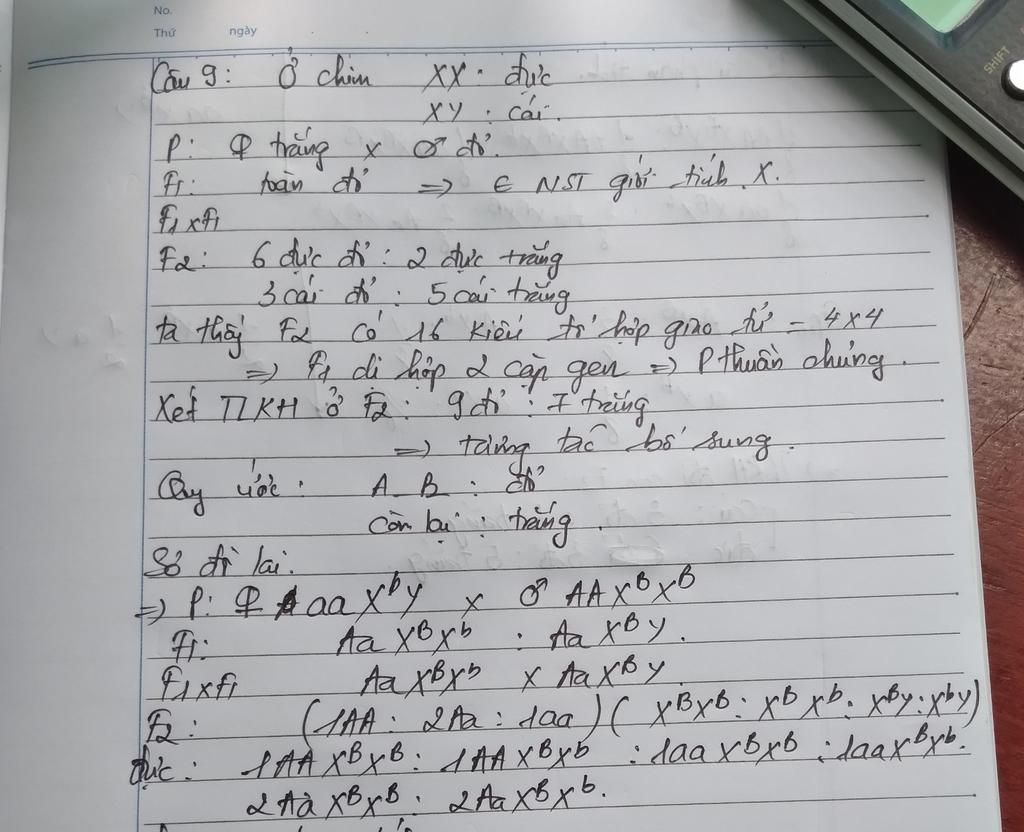 No.
Thứ ngày
SHIFT
Câu 9: Ở chim XX: đực
XY: cái.
P: ♀ trắng x ♂ đỏ.
F1: toàn đỏ => ∈ NST giới tính X.
F1xF1
F2: 6 đực đỏ : 2 đực trắng
3 cái đỏ : 5 cái trắng
ta thấy F2 có 16 kiểu tổ hợp giao tử = 4x4
=> F1 dị hợp 2 cặp gen => P thuần chủng.
Xét TLKH ở F2: 9 đỏ : 7 trắng
=> tương tác bổ sung.
Quy ước: A_B_: đỏ
còn lại: trắng.
Sơ đồ lai.
=> P: ♀ aa XᵇY x ♂ AA XᴮXᴮ
F1: Aa XᴮXᵇ : Aa XᴮY.
F1xF1 Aa XᴮXᵇ x Aa XᴮY
F2: (1AA : 2Aa : 1aa)( XᴮXᴮ: XᴮXᵇ: XᴮY: XᵇY)
đực: 1AA XᴮXᴮ: 1AA XᴮXᵇ : 1aa XᴮXᴮ : 1aa XᴮXᵇ.
2Aa XᴮXᴮ: 2Aa XᴮXᵇ.